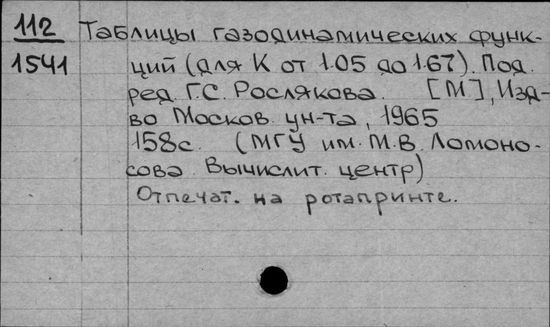 112 Таблицы газодинамических функ-
1541 ций (для К от 1.05 до 1.67). Под.
ред. Г.С. Рослякова. [М], Изд-
во Москов. ун-та, 1965
158с. (МГУ им. М.В. Ломоно-
сова. Вычислит. центр)
Отпечат. на ротапринте.